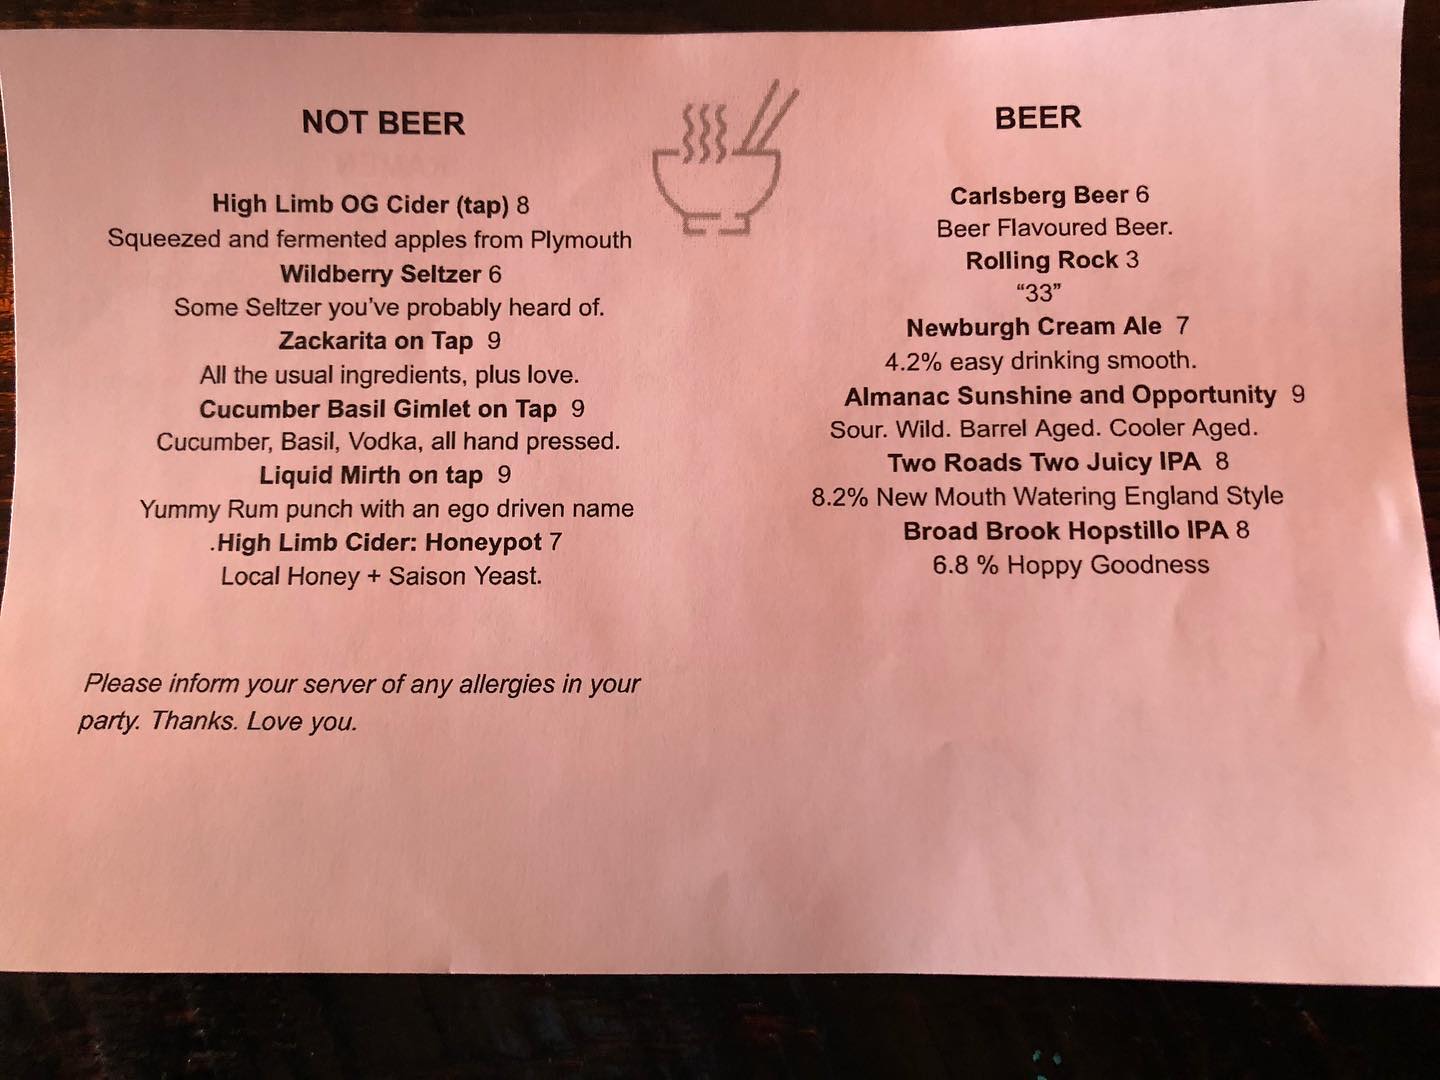 NOT BEER
High Limb OG Cider (tap) 8
Squeezed and fermented apples from Plymouth
Wildberry Seltzer 6
Some Seltzer you've probably heard of.
Zackarita on Tap 9
All the usual ingredients, plus love.
Cucumber Basil Gimlet on Tap 9
Cucumber, Basil, Vodka, all hand pressed.
Liquid Mirth on tap 9
Yummy Rum punch with an ego driven name
.High Limb Cider: Honeypot 7
Local Honey + Saison Yeast.
Please inform your server of any allergies in your
party. Thanks. Love you.
BEER
Carlsberg Beer 6
Beer Flavoured Beer.
Rolling Rock 3
“33”
Newburgh Cream Ale 7
4.2% easy drinking smooth.
Almanac Sunshine and Opportunity 9
Sour. Wild. Barrel Aged. Cooler Aged.
Two Roads Two Juicy IPA 8
8.2% New Mouth Watering England Style
Broad Brook Hopstillo IPA 8
6.8 % Hoppy Goodness